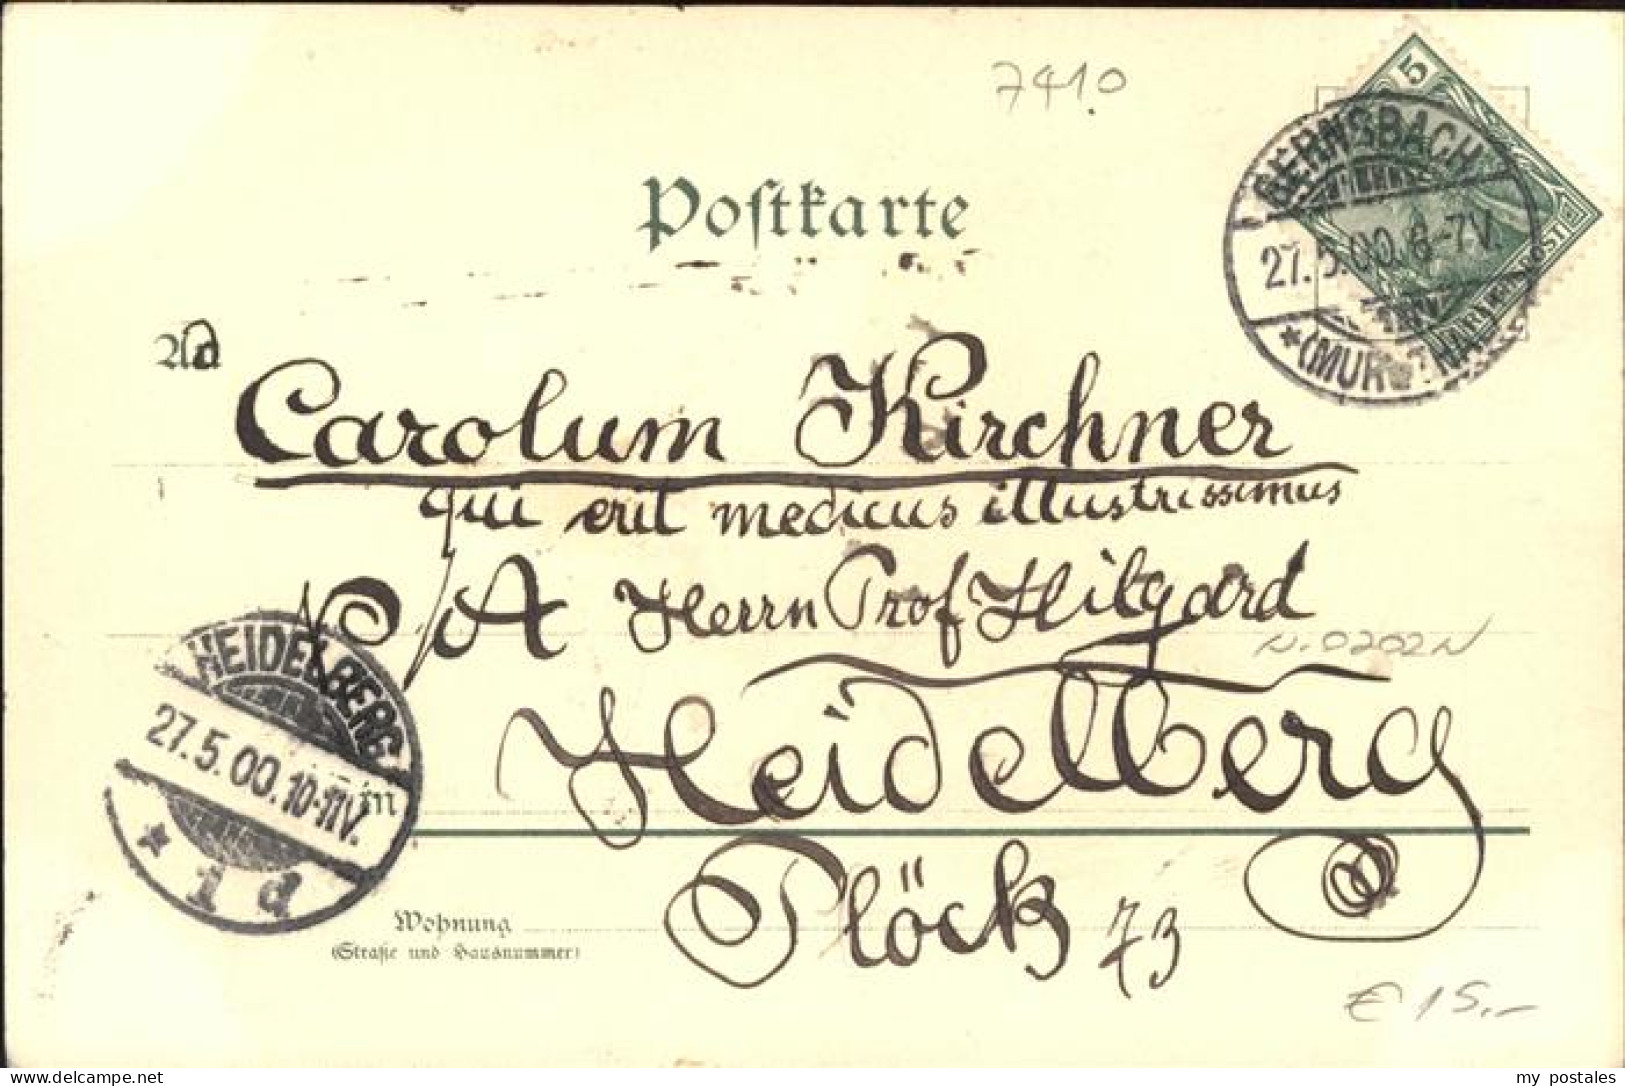 7410
5
GERNSBACH
27.5.00.6-7V.
*(MURGTHAL)
REICHSPOST
Postkarte
Ad
Carolum Kirchner
qui erit medicus illustrissimus
P/A Herrn Prof. Hilgard
N.0202N
Heidelberg
HEIDELBERG
27.5.00.10-11V.
* 1 d
in
Plöck 73
Wohnung
(Straße und Hausnummer)
€ 15,-
my postales